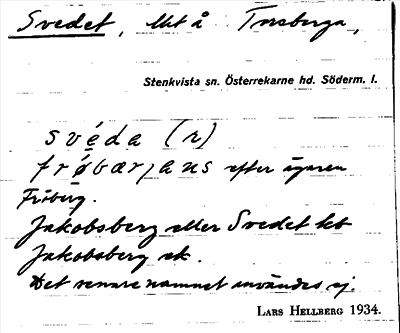 Svedet, lht å Torsberga,
Stenkvista sn. Österrekarne hd. Söderm. l.
svéda (n)
frǿbærjans efter ägaren
Fröberg.
Jakobsberg eller Svedet hb
Jakobsberg ek.
Det senare namnet användes ej.
LARS HELLBERG 1934.